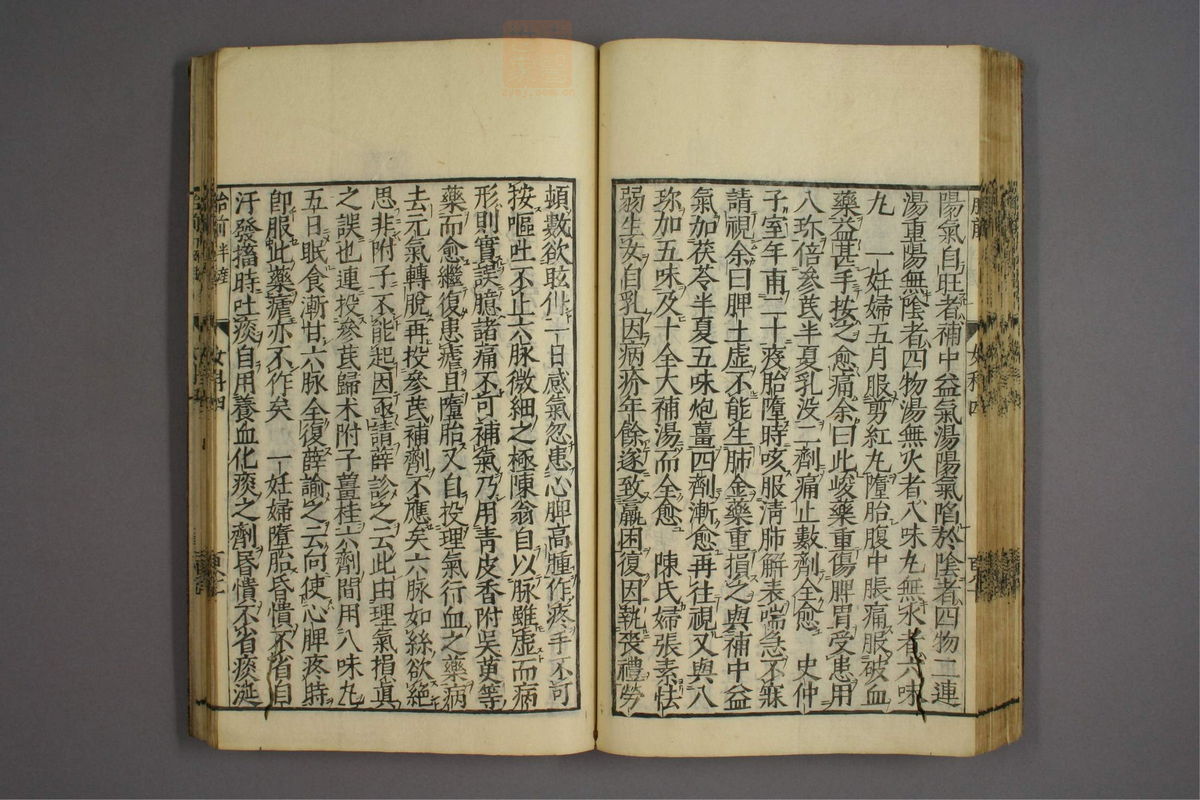 陽氣自旺者補中益氣湯陽氣陷於陰者四物二連
湯重陽無陰者四物湯無火者八味丸無水者六味
丸　一妊婦五月服剪紅丸墮胎腹中脹痛服破血
藥益甚手按之愈痛余曰此峻藥重傷脾胃受患用
八珎倍參芪半夏乳没二劑痛止數劑全愈　史仲
子室年甫二十疫胎墮時咳服清肺解表喘急不寐
請視余曰脾土虛不能生肺金藥重損之與補中益
氣加茯苓半夏五味炮薑四劑漸愈再往視又與八
珎加五味及十全大補湯而全愈　陳氏婦張素怯
弱生女自乳因病疥年餘逐致羸困復因執喪禮勞
頓數欲眩仆一日感氣忽患心脾高腫作疼手不可
按嘔吐不止六脉微細之極陳翁自以脉雖虛而病
形則實誤臆諸痛不可補氣乃用靑皮香附吳萸等
藥而愈繼復患瘧且墮胎又自投理氣行血之藥病
去元氣轉脫再投參芪補劑不應矣六脉如絲欲絶
思非附子不能起因亟請薛診之云此由理氣損眞
之誤也連投參芪歸术附子薑桂六劑間用八味丸
五日眠食漸甘六脉全復薛諭之云向使心脾疼時
卽服此藥瘧亦不作矣　一妊婦墮胎昏憒不省自
汗發搐時吐痰自用養血化痰之劑昏憒不省痰涎
胎前
女科四